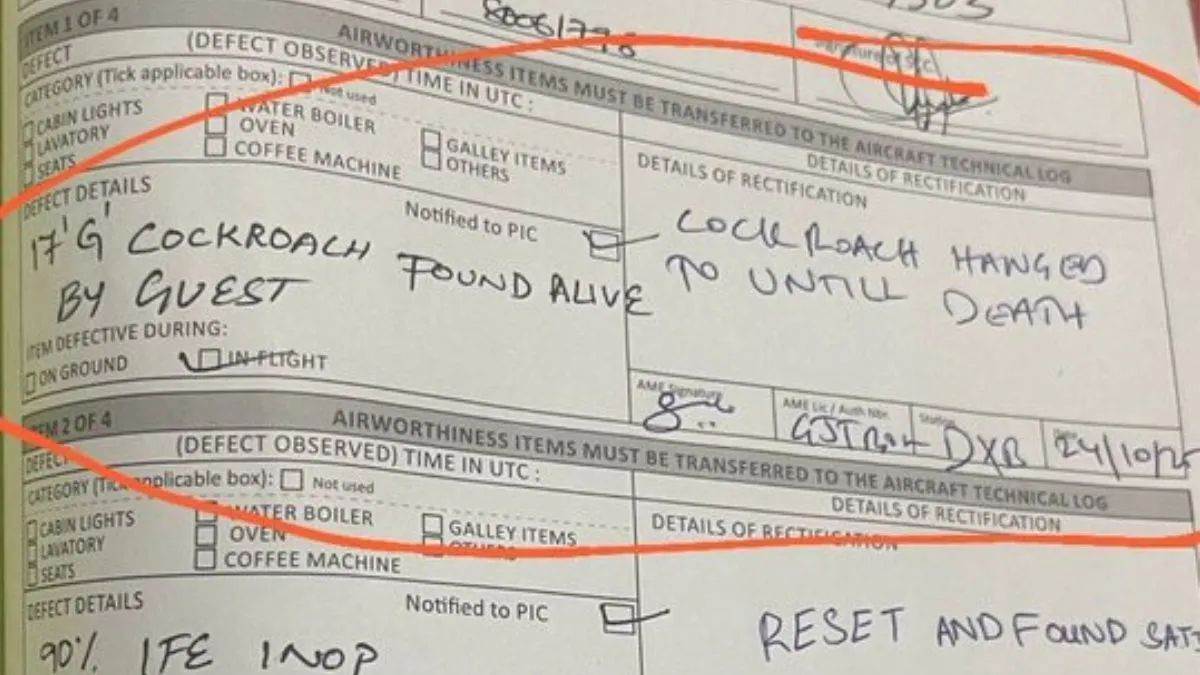 80061798
Signature of SCC
ITEM 1 OF 4
AIRWORTHINESS ITEMS MUST BE TRANSFERRED TO THE AIRCRAFT TECHNICAL LOG
DEFECT
(DEFECT OBSERVED) TIME IN UTC :
DETAILS OF RECTIFICATION
CATEGORY (Tick applicable box): Not used
CABIN LIGHTS
WATER BOILER
GALLEY ITEMS
LAVATORY
OVEN
OTHERS
SEATS
COFFEE MACHINE
DETAILS OF RECTIFICATION
DEFECT DETAILS
Notified to PIC
17'G' COCKROACH FOUND ALIVE
BY GUEST
COCKROACH HANGED
TO UNTILL DEATH
ITEM DEFECTIVE DURING:
ON GROUND
IN-FLIGHT
AME Signature
AME Lic / Auth Nbr.
Station
Date
DXB
24/10/25
ITEM 2 OF 4
AIRWORTHINESS ITEMS MUST BE TRANSFERRED TO THE AIRCRAFT TECHNICAL LOG
DEFECT
(DEFECT OBSERVED) TIME IN UTC :
DETAILS OF RECTIFICATION
CATEGORY (Tick applicable box): Not used
CABIN LIGHTS
WATER BOILER
GALLEY ITEMS
LAVATORY
OVEN
OTHERS
SEATS
COFFEE MACHINE
DETAILS OF RECTIFICATION
DEFECT DETAILS
Notified to PIC
90% IFE INOP
RESET AND FOUND SATIS